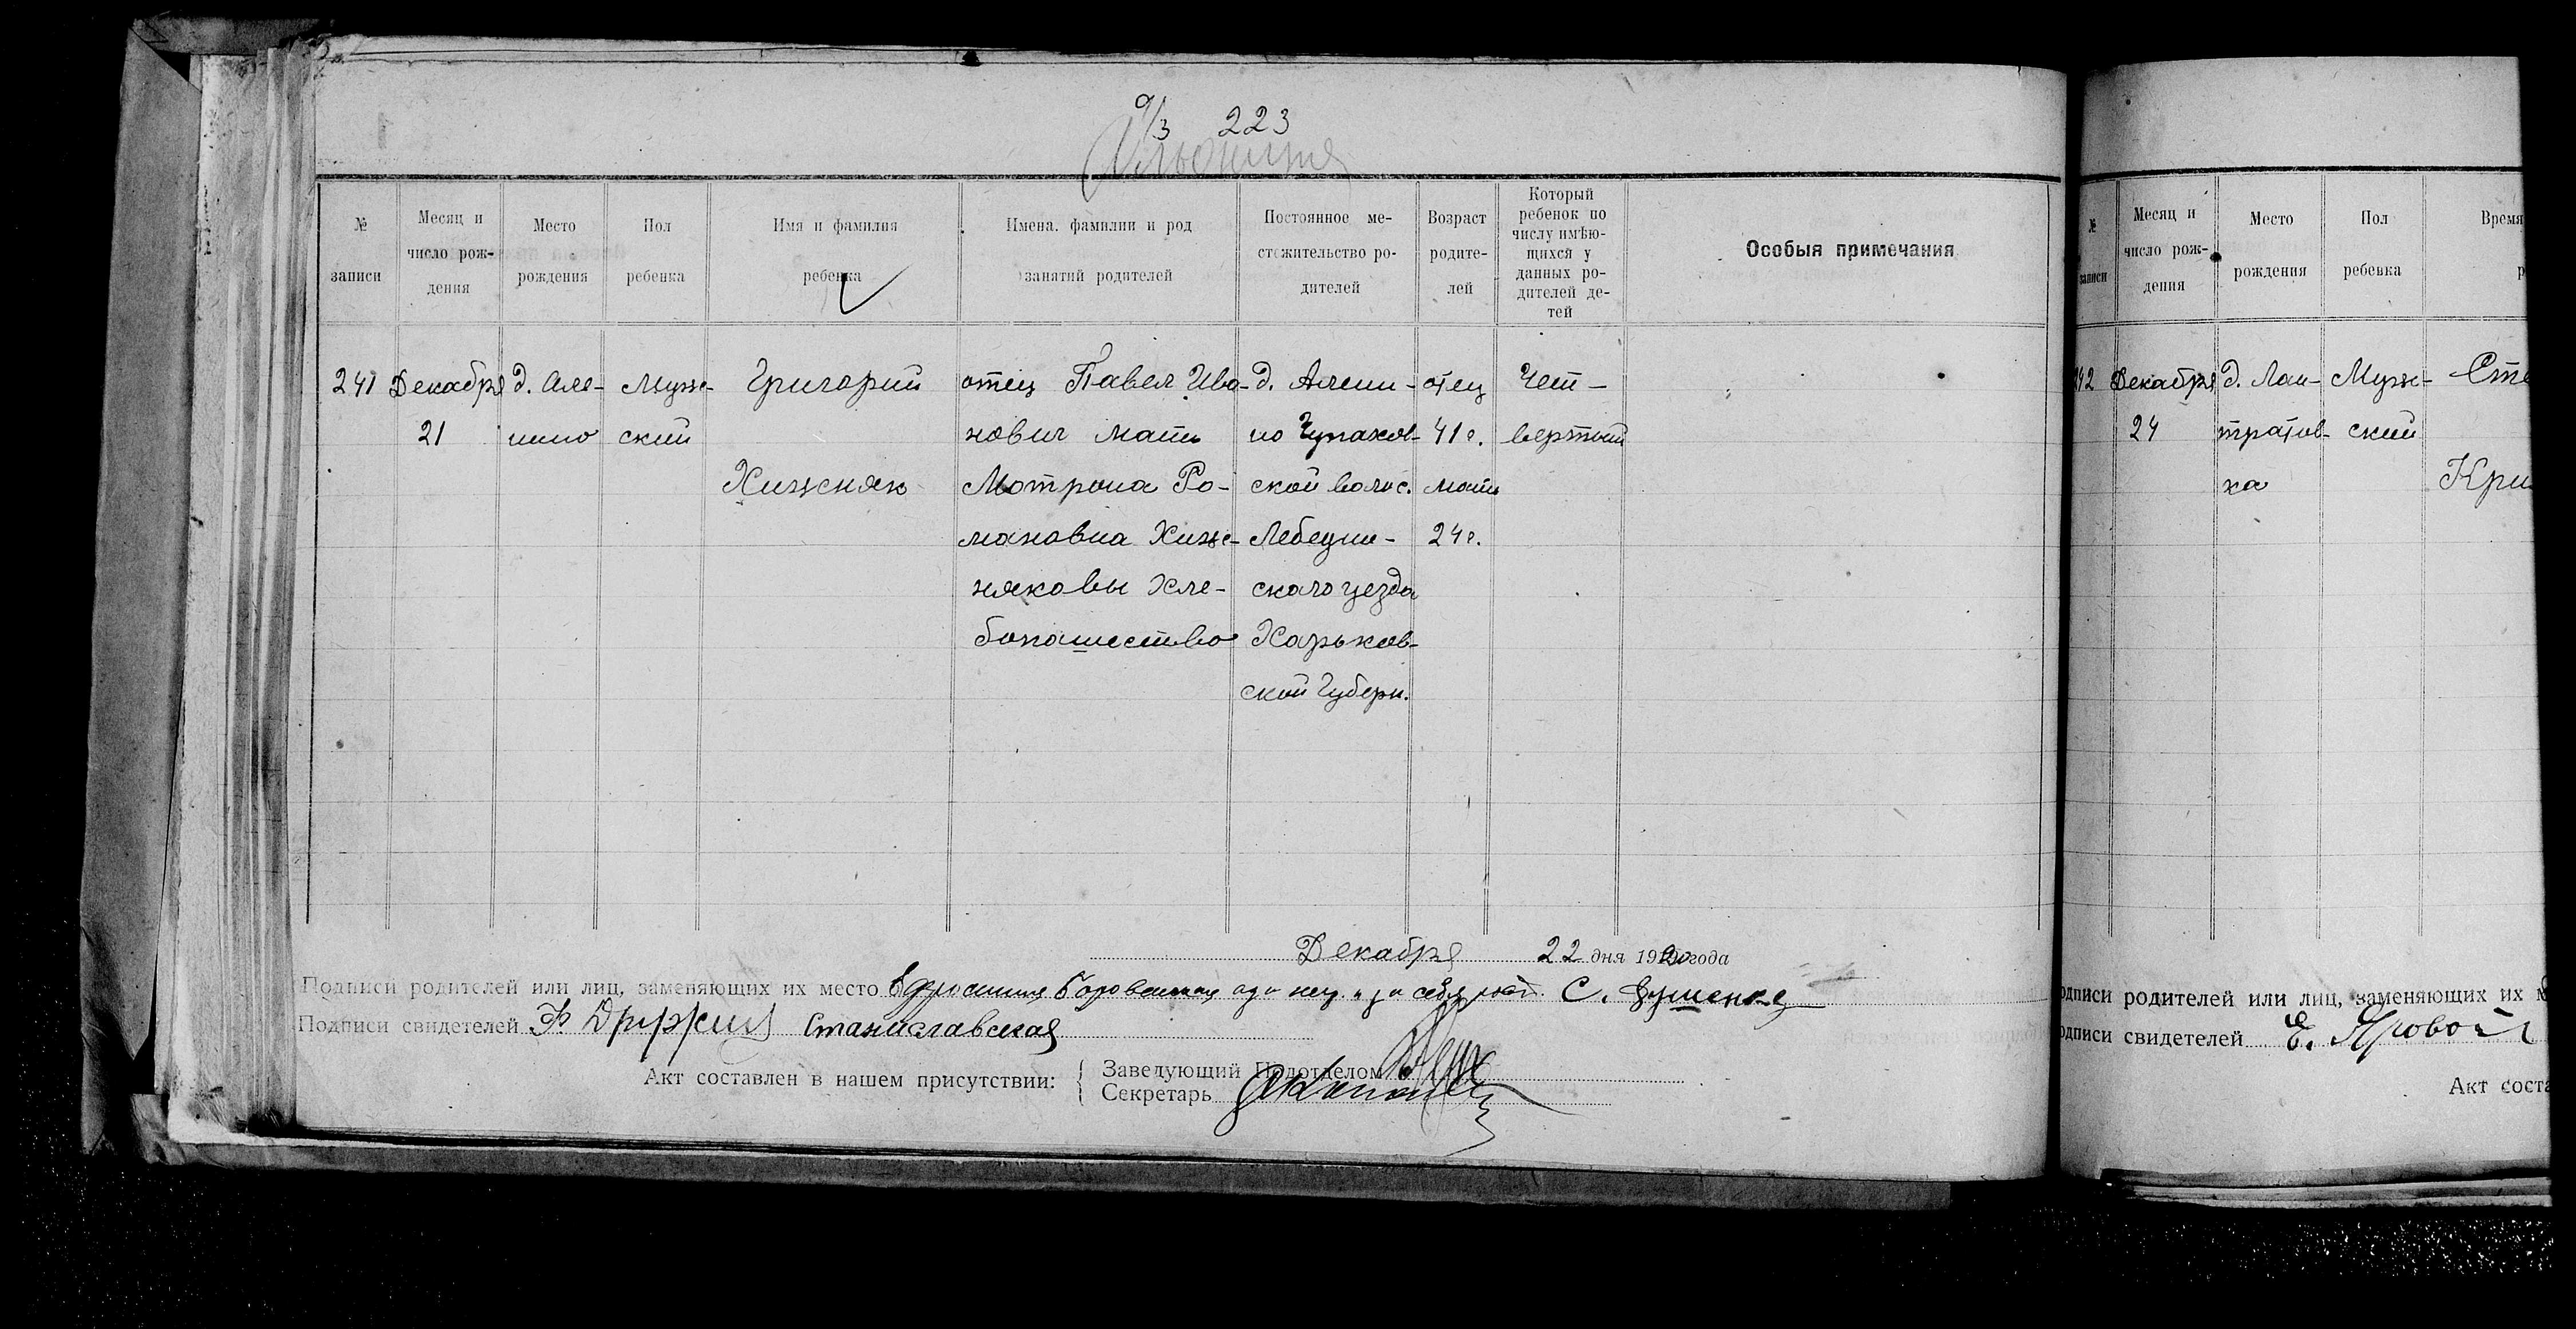 о/з 223
№ записи
Месяц и число рождения
Место рождения
Пол ребенка
Имя и фамилия ребенка
Имена, фамилии и род занятий родителей
Постоянное местожительство родителей
Возраст родителей
Который ребенок по числу имѣющихся у данных родителей детей
Особыя примечания
241
Декабря
21
д. Але-
шино
Муж-
ский
Григорий
Хижсняк
отец Павел Ива-
нович мать
Мотрона Ро-
мановна Хиж-
няковы Хле-
бопашество
д. Алеши-
но Чупахов-
ской волос.
Лебедин-
ского уезда
Харьков-
ской Губерн.
отец
41 г.
мать
24 г.
Чет-
вертый
Декабря 22 дня 1920 года
Подписи родителей или лиц, заменяющих их место
Подписи свидетелей Станиславская
Акт составлен в нашем присутствии:
Заведующий Подотделом
Секретарь
№ записи
Месяц и число рождения
Место рождения
Пол ребенка
Время
242
Декабря
24
д. Лан-
тратов-
ка
Муж-
ский
Сте
Кри
одписи родителей или лиц, заменяющих их м
одписи свидетелей Е. Яровой
Акт соста